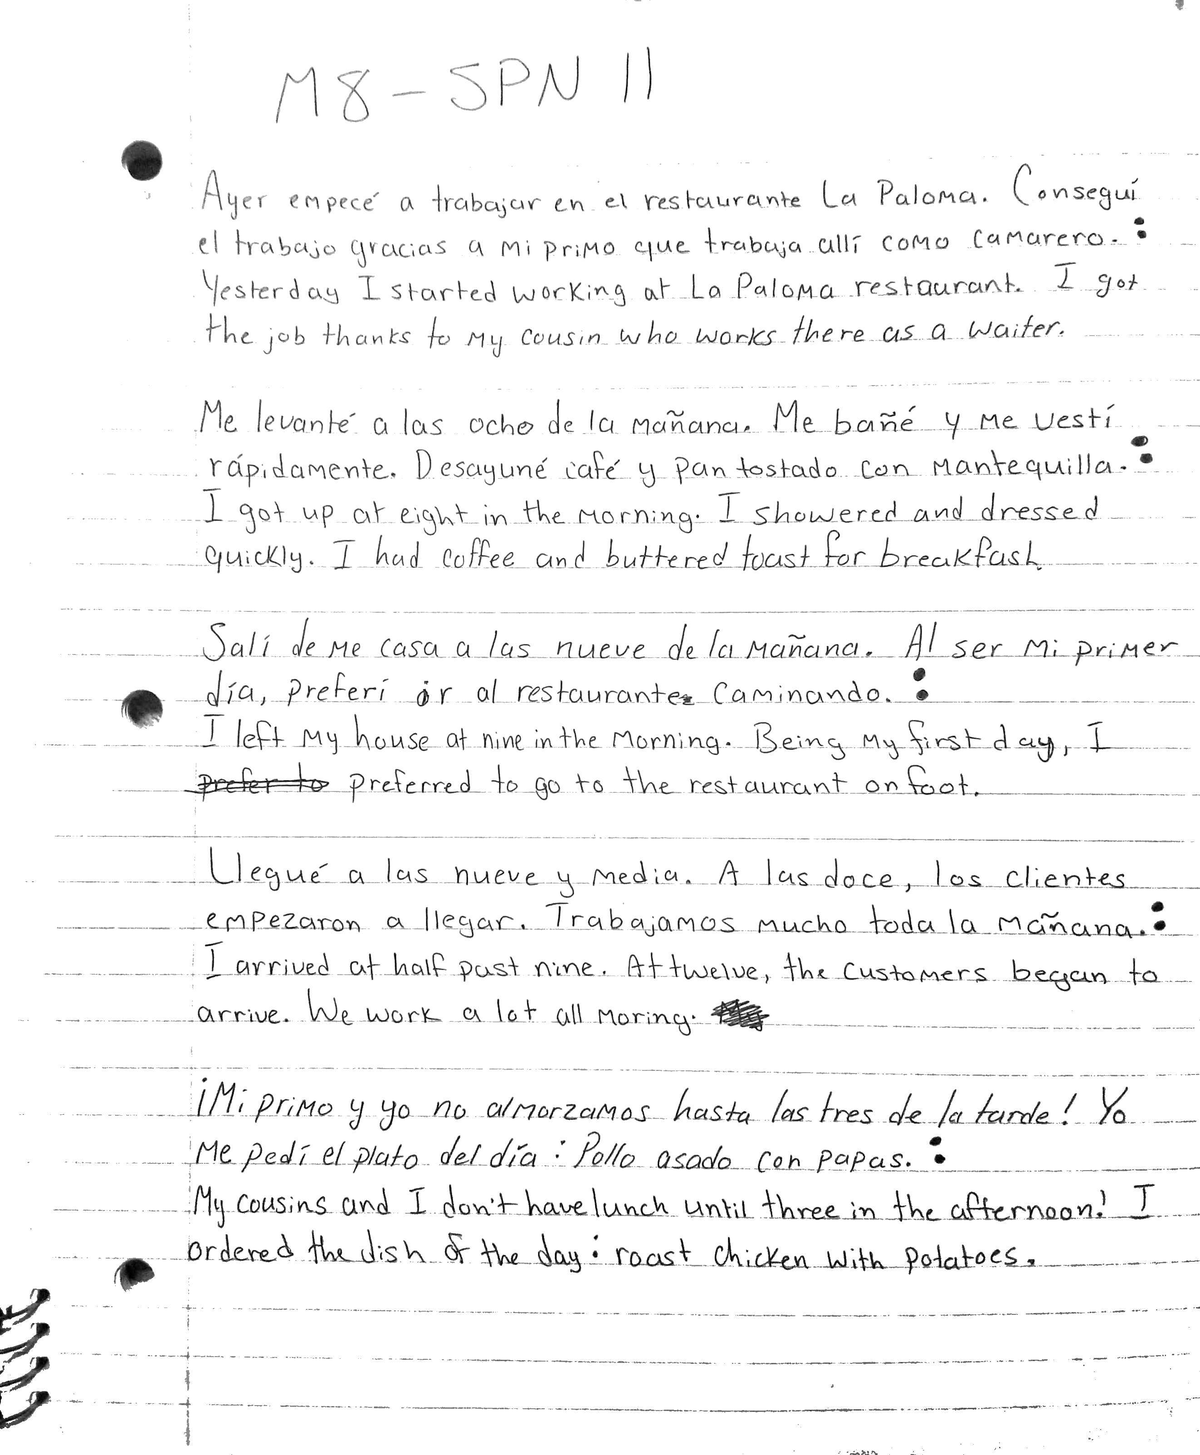 M8 - SPN 11
Ayer empecé a trabajar en el restaurante La Paloma. Conseguí
el trabajo gracias a mi primo que trabaja allí como camarero. :
Yesterday I started working at La Paloma restaurant. I got
the job thanks to my cousin who works there as a waiter.
Me levanté a las ocho de la mañana. Me bañé y me vestí
rápidamente. Desayuné café y pan tostado con mantequilla. :
I got up at eight in the morning. I showered and dressed
quickly. I had coffee and buttered toast for breakfast.
Salí de me casa a las nueve de la mañana. Al ser mi primer
día, preferí ir al restaurante caminando. :
I left my house at nine in the morning. Being my first day, I
prefer to preferred to go to the restaurant on foot.
Llegué a las nueve y media. A las doce, los clientes
empezaron a llegar. Trabajamos mucho toda la mañana. :
I arrived at half past nine. At twelve, the customers began to
arrive. We work a lot all moring.
¡Mi primo y yo no almorzamos hasta las tres de la tarde! Yo
me pedí el plato del día : Pollo asado con papas. :
My cousins and I don't have lunch until three in the afternoon! I
ordered the dish of the day : roast chicken with potatoes.